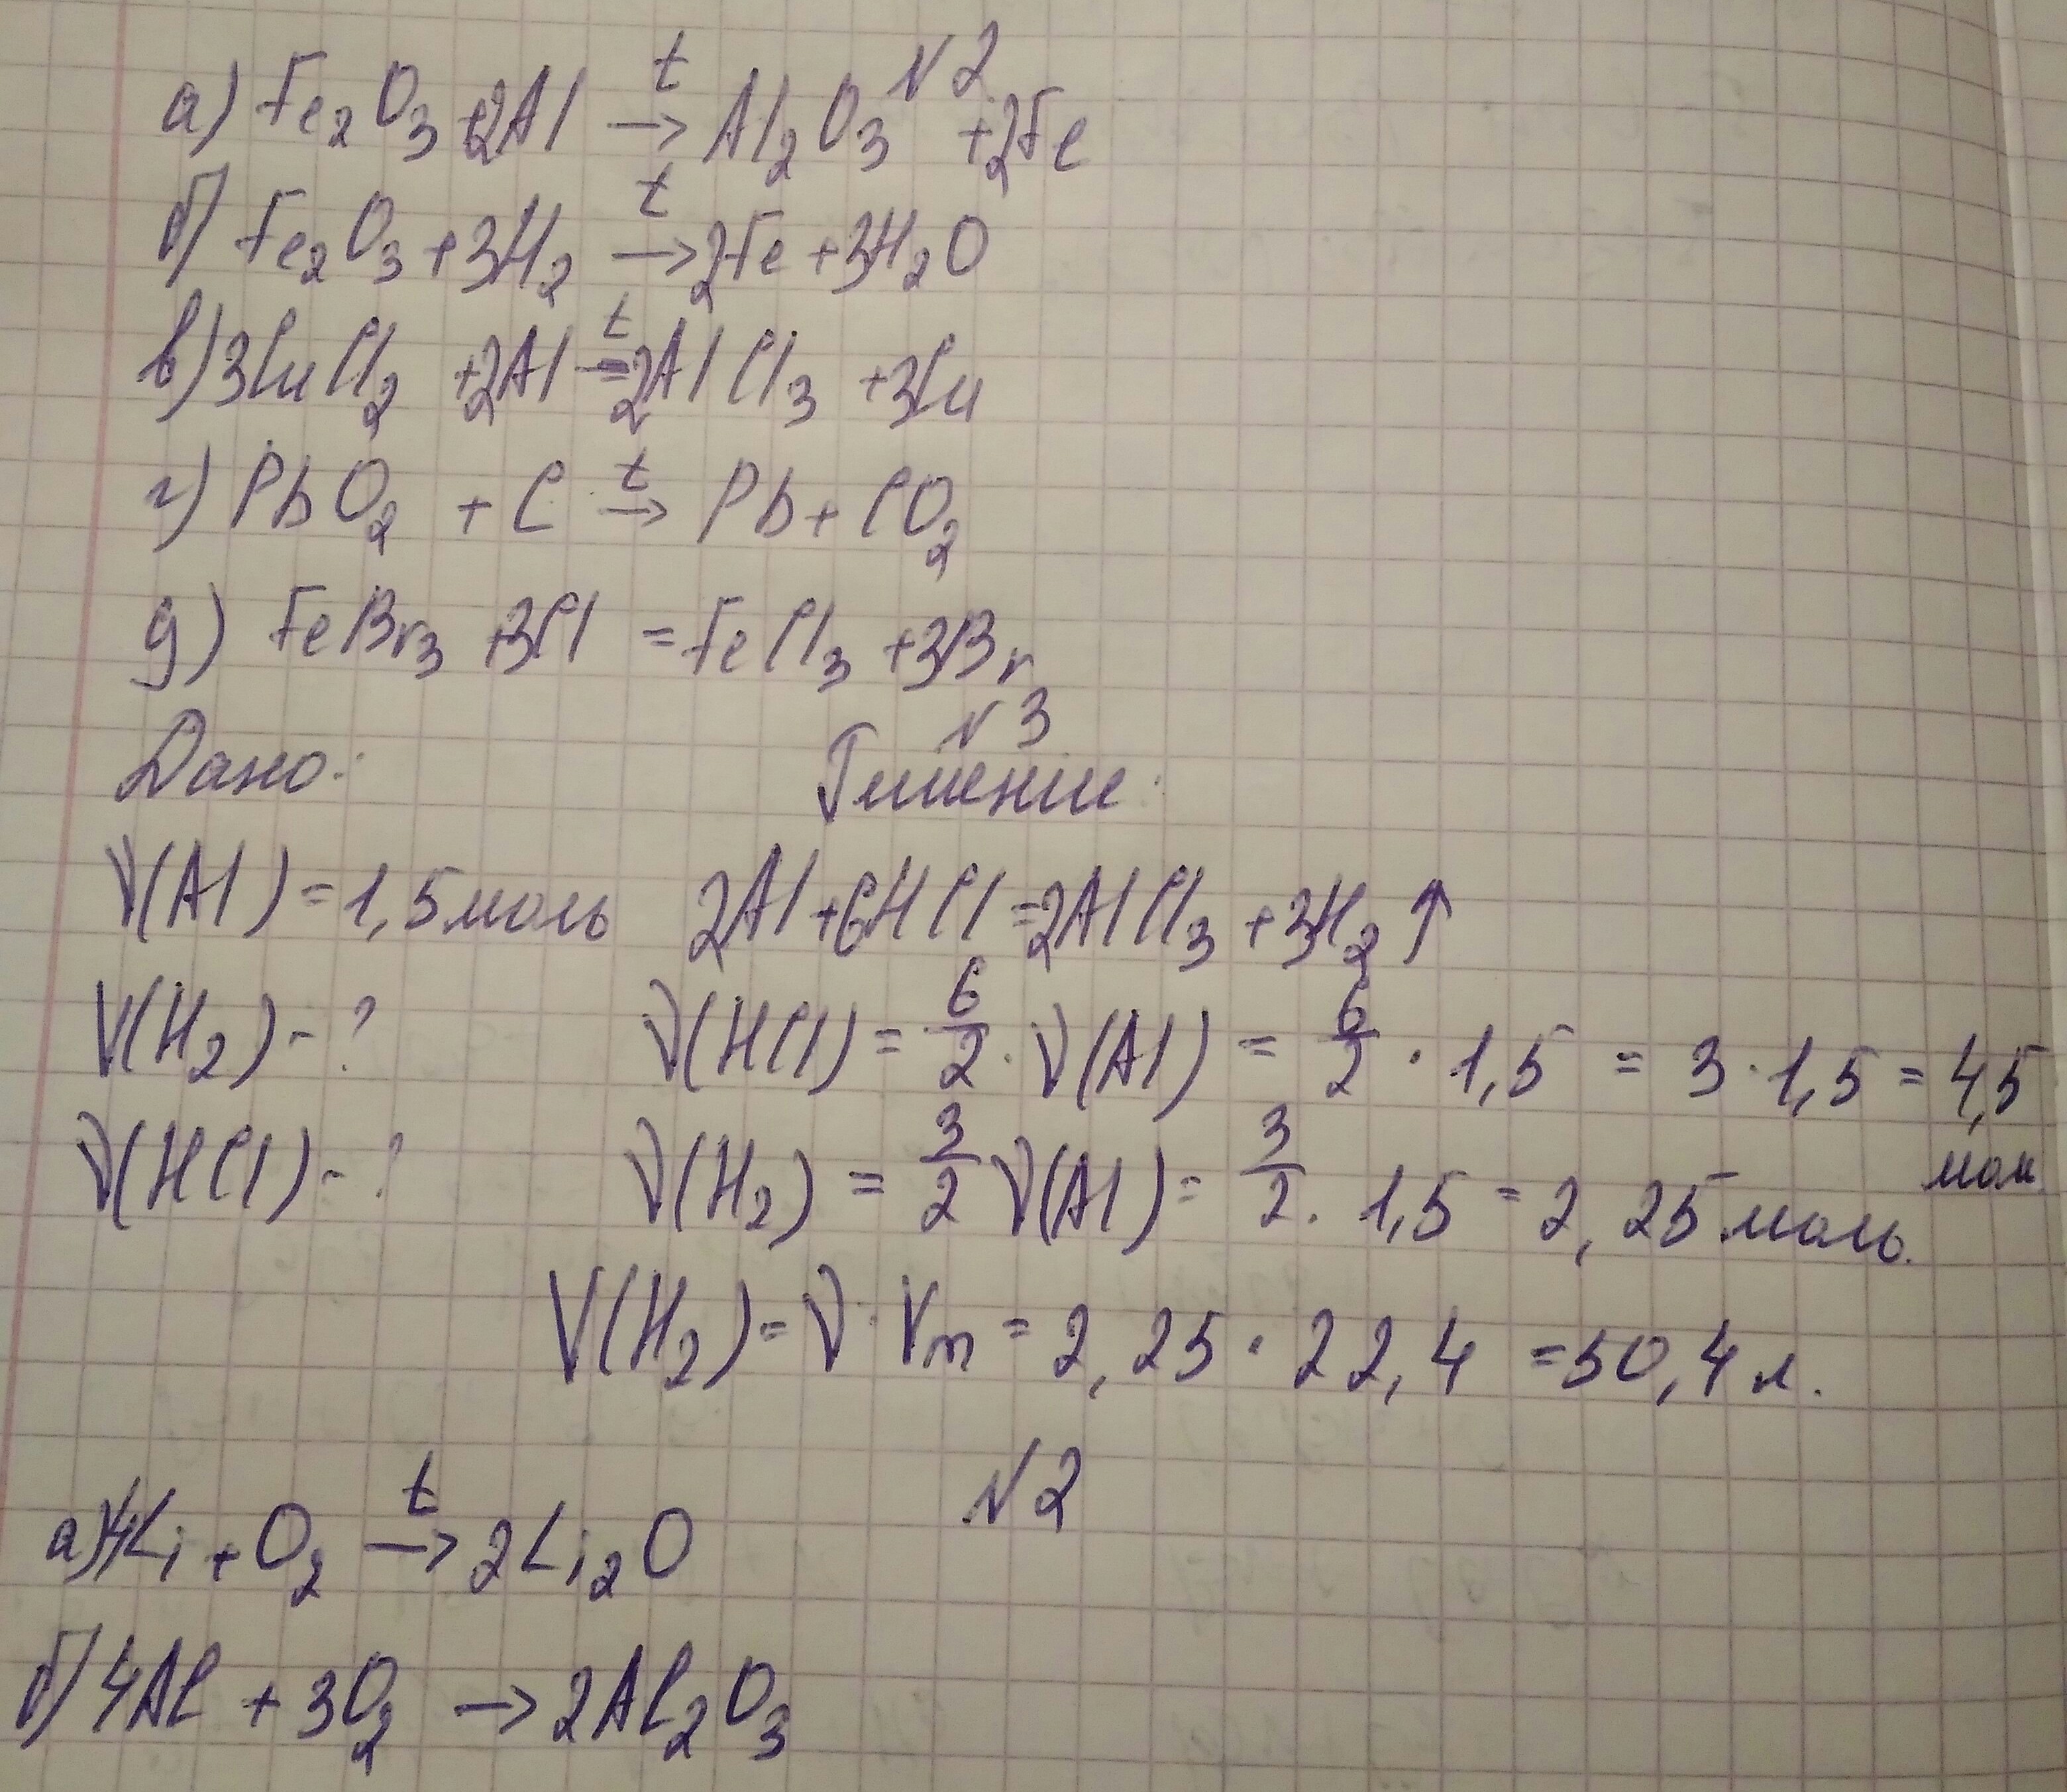 N2
а) Fe₂O₃ + 2Al →ᵗ Al₂O₃ + 2Fe
б) Fe₂O₃ + 3H₂ →ᵗ 2Fe + 3H₂O
в) 3CuCl₂ + 2Al =ᵗ 2AlCl₃ + 3Cu
г) PbO₂ + C →ᵗ Pb + CO₂
д) FeBr₃ + 3Cl = FeCl₃ + 3Br
N3
Дано: Решение:
ν(Al) = 1,5 моль 2Al + 6HCl = 2AlCl₃ + 3H₂ ↑
V(H₂) - ? ν(HCl) = 6/2 · ν(Al) = 6/2 · 1,5 = 3 · 1,5 = 4,5 мол
ν(HCl) - ? ν(H₂) = 3/2 ν(Al) = 3/2 · 1,5 = 2,25 моль.
V(H₂) = ν · Vm = 2,25 · 22,4 = 50,4 л.
N2
а) 4Li + O₂ →ᵗ 2Li₂O
б) 4Al + 3O₂ → 2Al₂O₃